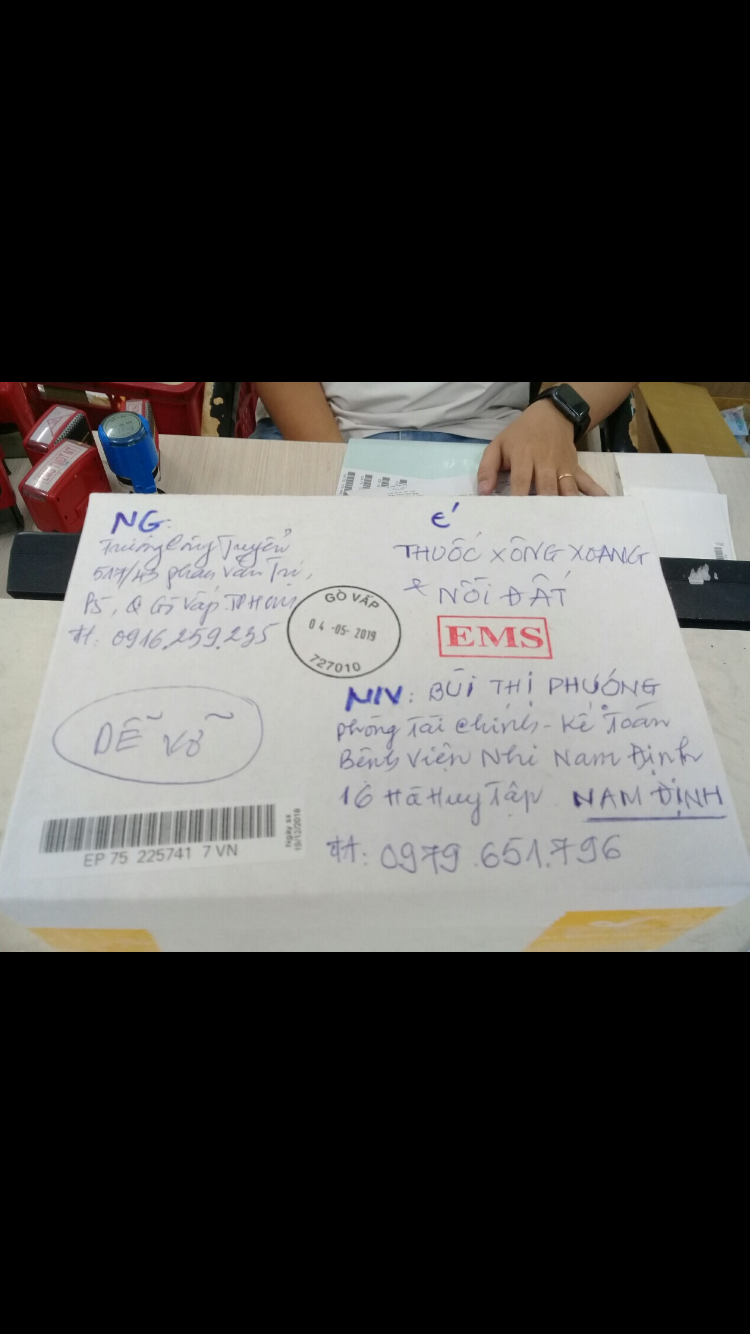 NG:
Trương Công Tuyển
517/43 Phan Văn Trị,
P5, Q Gò Vấp. TP HCM
ĐT: 0916.259.235
É
THUỐC XÔNG XOANG
& NỒI ĐẤT
GÒ VẤP
04 -05- 2019
727010
EMS
DỄ VỠ
NIV: BÙI THỊ PHƯỚNG
Phòng Tài Chính - Kế Toán
Bệnh Viện Nhi Nam Định
16 Hà Huy Tập NAM ĐỊNH
ĐT: 0979.651.796
Ngày sx
EP 75 225741 7 VN